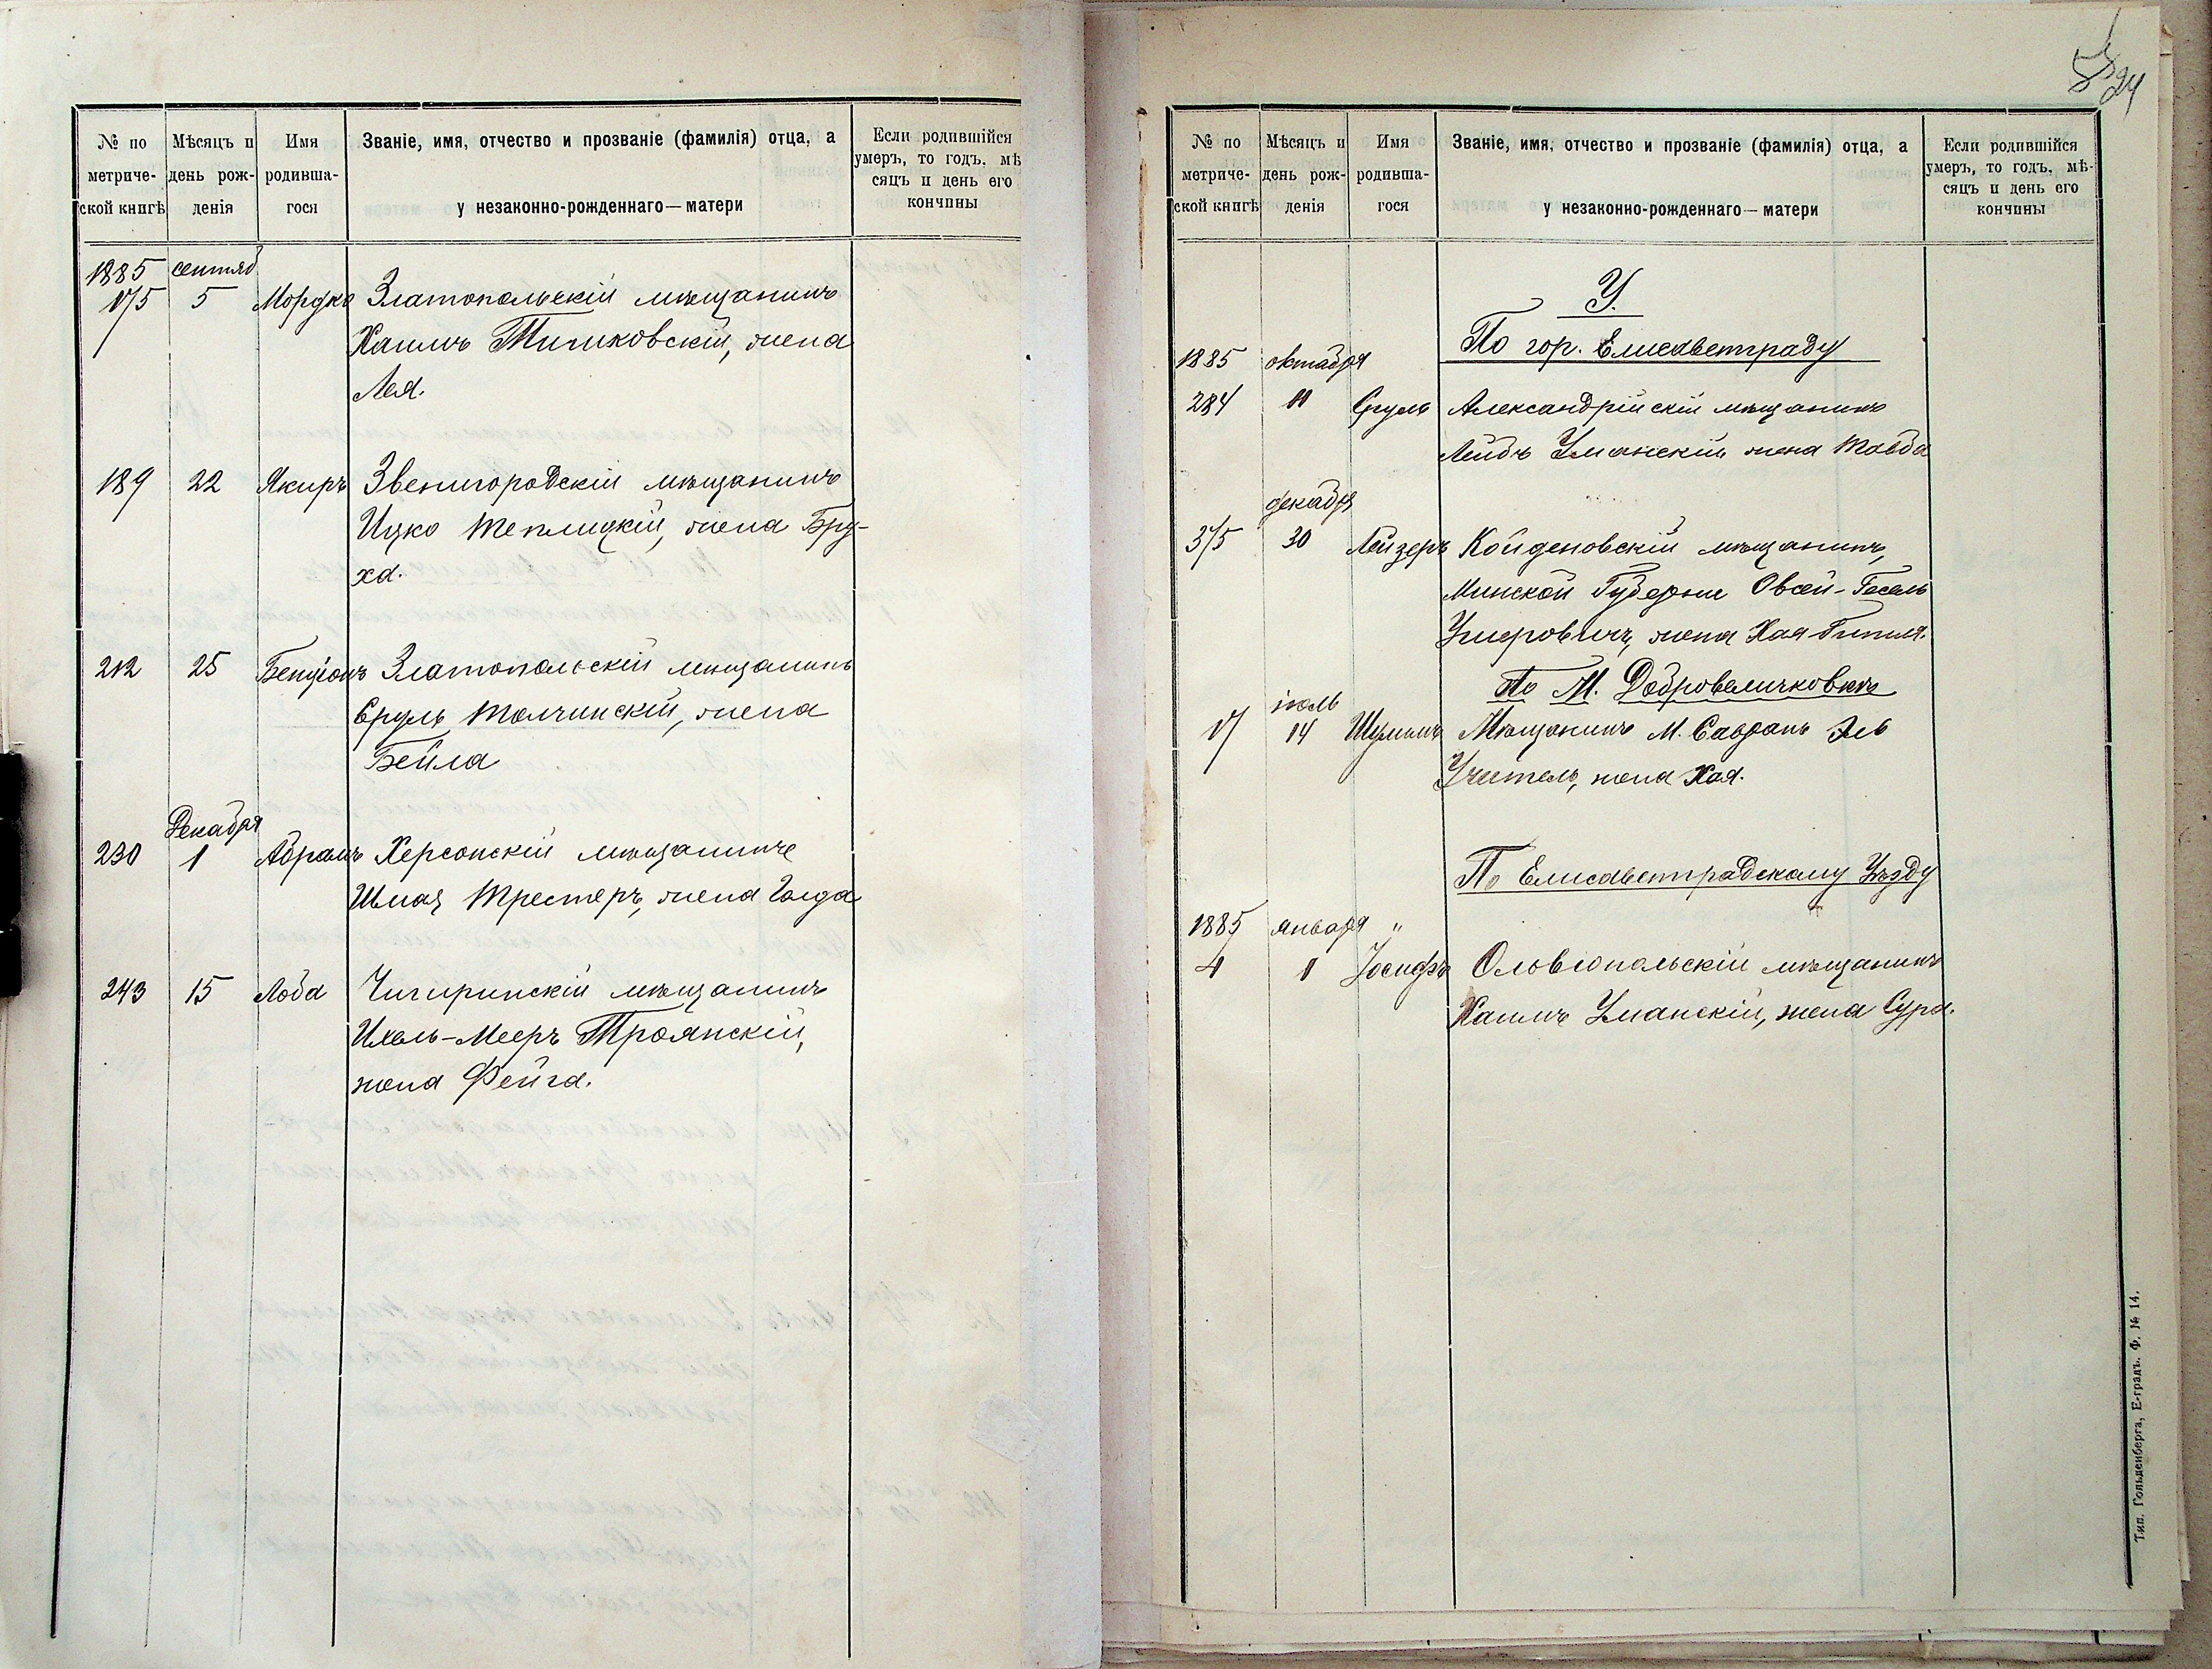 № по метриче-ской книгѣ
Мѣсяцъ и день рож-денія
Имя родивша-гося
Званіе, имя, отчество и прозваніе (фамилія) отца, а у незаконно-рожденнаго — матери
Если родившійся умеръ, то годъ, мѣ сяцъ и день его кончины
1885 сентяб
175 5 Мордко Златопольскій мѣщанинъ
Хаимъ Тышковскій, жена
Лея.
189 22 Якиръ Звенигородскій мѣщанинъ
Ицко Теплицкій, жена Бру-
ха.
212 25 Бенціонъ Златопольскій мѣщанинъ
Сруль Толчинскій, жена
Бейла
Декабря
230 1 Абрамъ Херсонскій мѣщанинъ
Шмая Трестеръ, жена Голда
243 15 Люба Чигиринскій мѣщанинъ
Ихель-Мееръ Троянскій,
жена Фейга.
24
№ по метриче-ской книгѣ
Мѣсяцъ и день рож-денія
Имя родивша-гося
Званіе, имя, отчество и прозваніе (фамилія) отца, а у незаконно-рожденнаго — матери
Если родившійся умеръ, то годъ, мѣ-сяцъ и день его кончины
У.
По гор. Елисаветграду
1885 октября
284 11 Сруль Александрійскій мѣщанинъ
Лейбъ Уманскій жена Товба
декабря
375 30 Лейзеръ Койденовскій мѣщанинъ,
Минской Губерніи Овсей-Гесель
жена Хая
По М. Добровеличковкѣ
іюль
17 14 Шулимъ Мѣщанинъ М. Саврань Эль
Учитель, жена Хая.
По Елисаветградскому Уѣзду
1885 января "
4 1 Іосифъ Ольвіопольскій мѣщанинъ
Хаимъ Уманскій, жена Сура.
Тип. Гольденберга, Е-градъ. Ф. № 14.